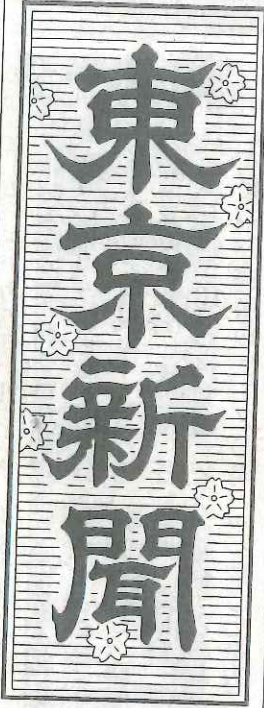 東京新聞